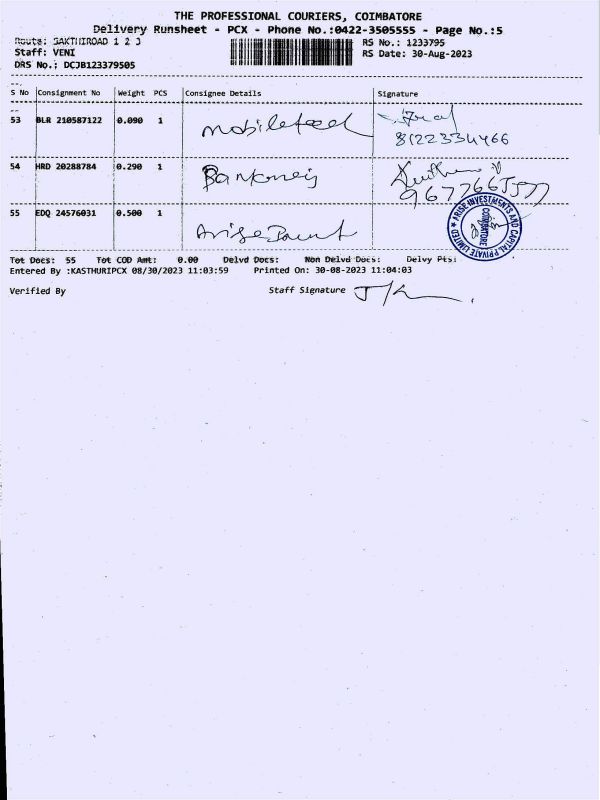 THE PROFESSIONAL COURIERS, COIMBATORE
Delivery Runsheet - PCX - Phone No.:0422-3505555 - Page No.:5
Route: SAKTHIROAD 1 2 3 RS No.: 1233795
Staff: VENI RS Date: 30-Aug-2023
DRS No.: DCJB123379505
S No Consignment No Weight PCS Consignee Details Signature
53 BLR 210587122 0.090 1
8122334466
54 HRD 20288784 0.290 1
55 EDQ 24576031 0.500 1 Arise
ARISE INVESTMENTS AND CAPITAL PRIVATE LIMITED ★
COIMBATORE
Tot Docs: 55 Tot COD Amt: 0.00 Delvd Docs: Non Delvd Docs: Delvy Pts:
Entered By :KASTHURIPCX 08/30/2023 11:03:59 Printed On: 30-08-2023 11:04:03
Verified By Staff Signature